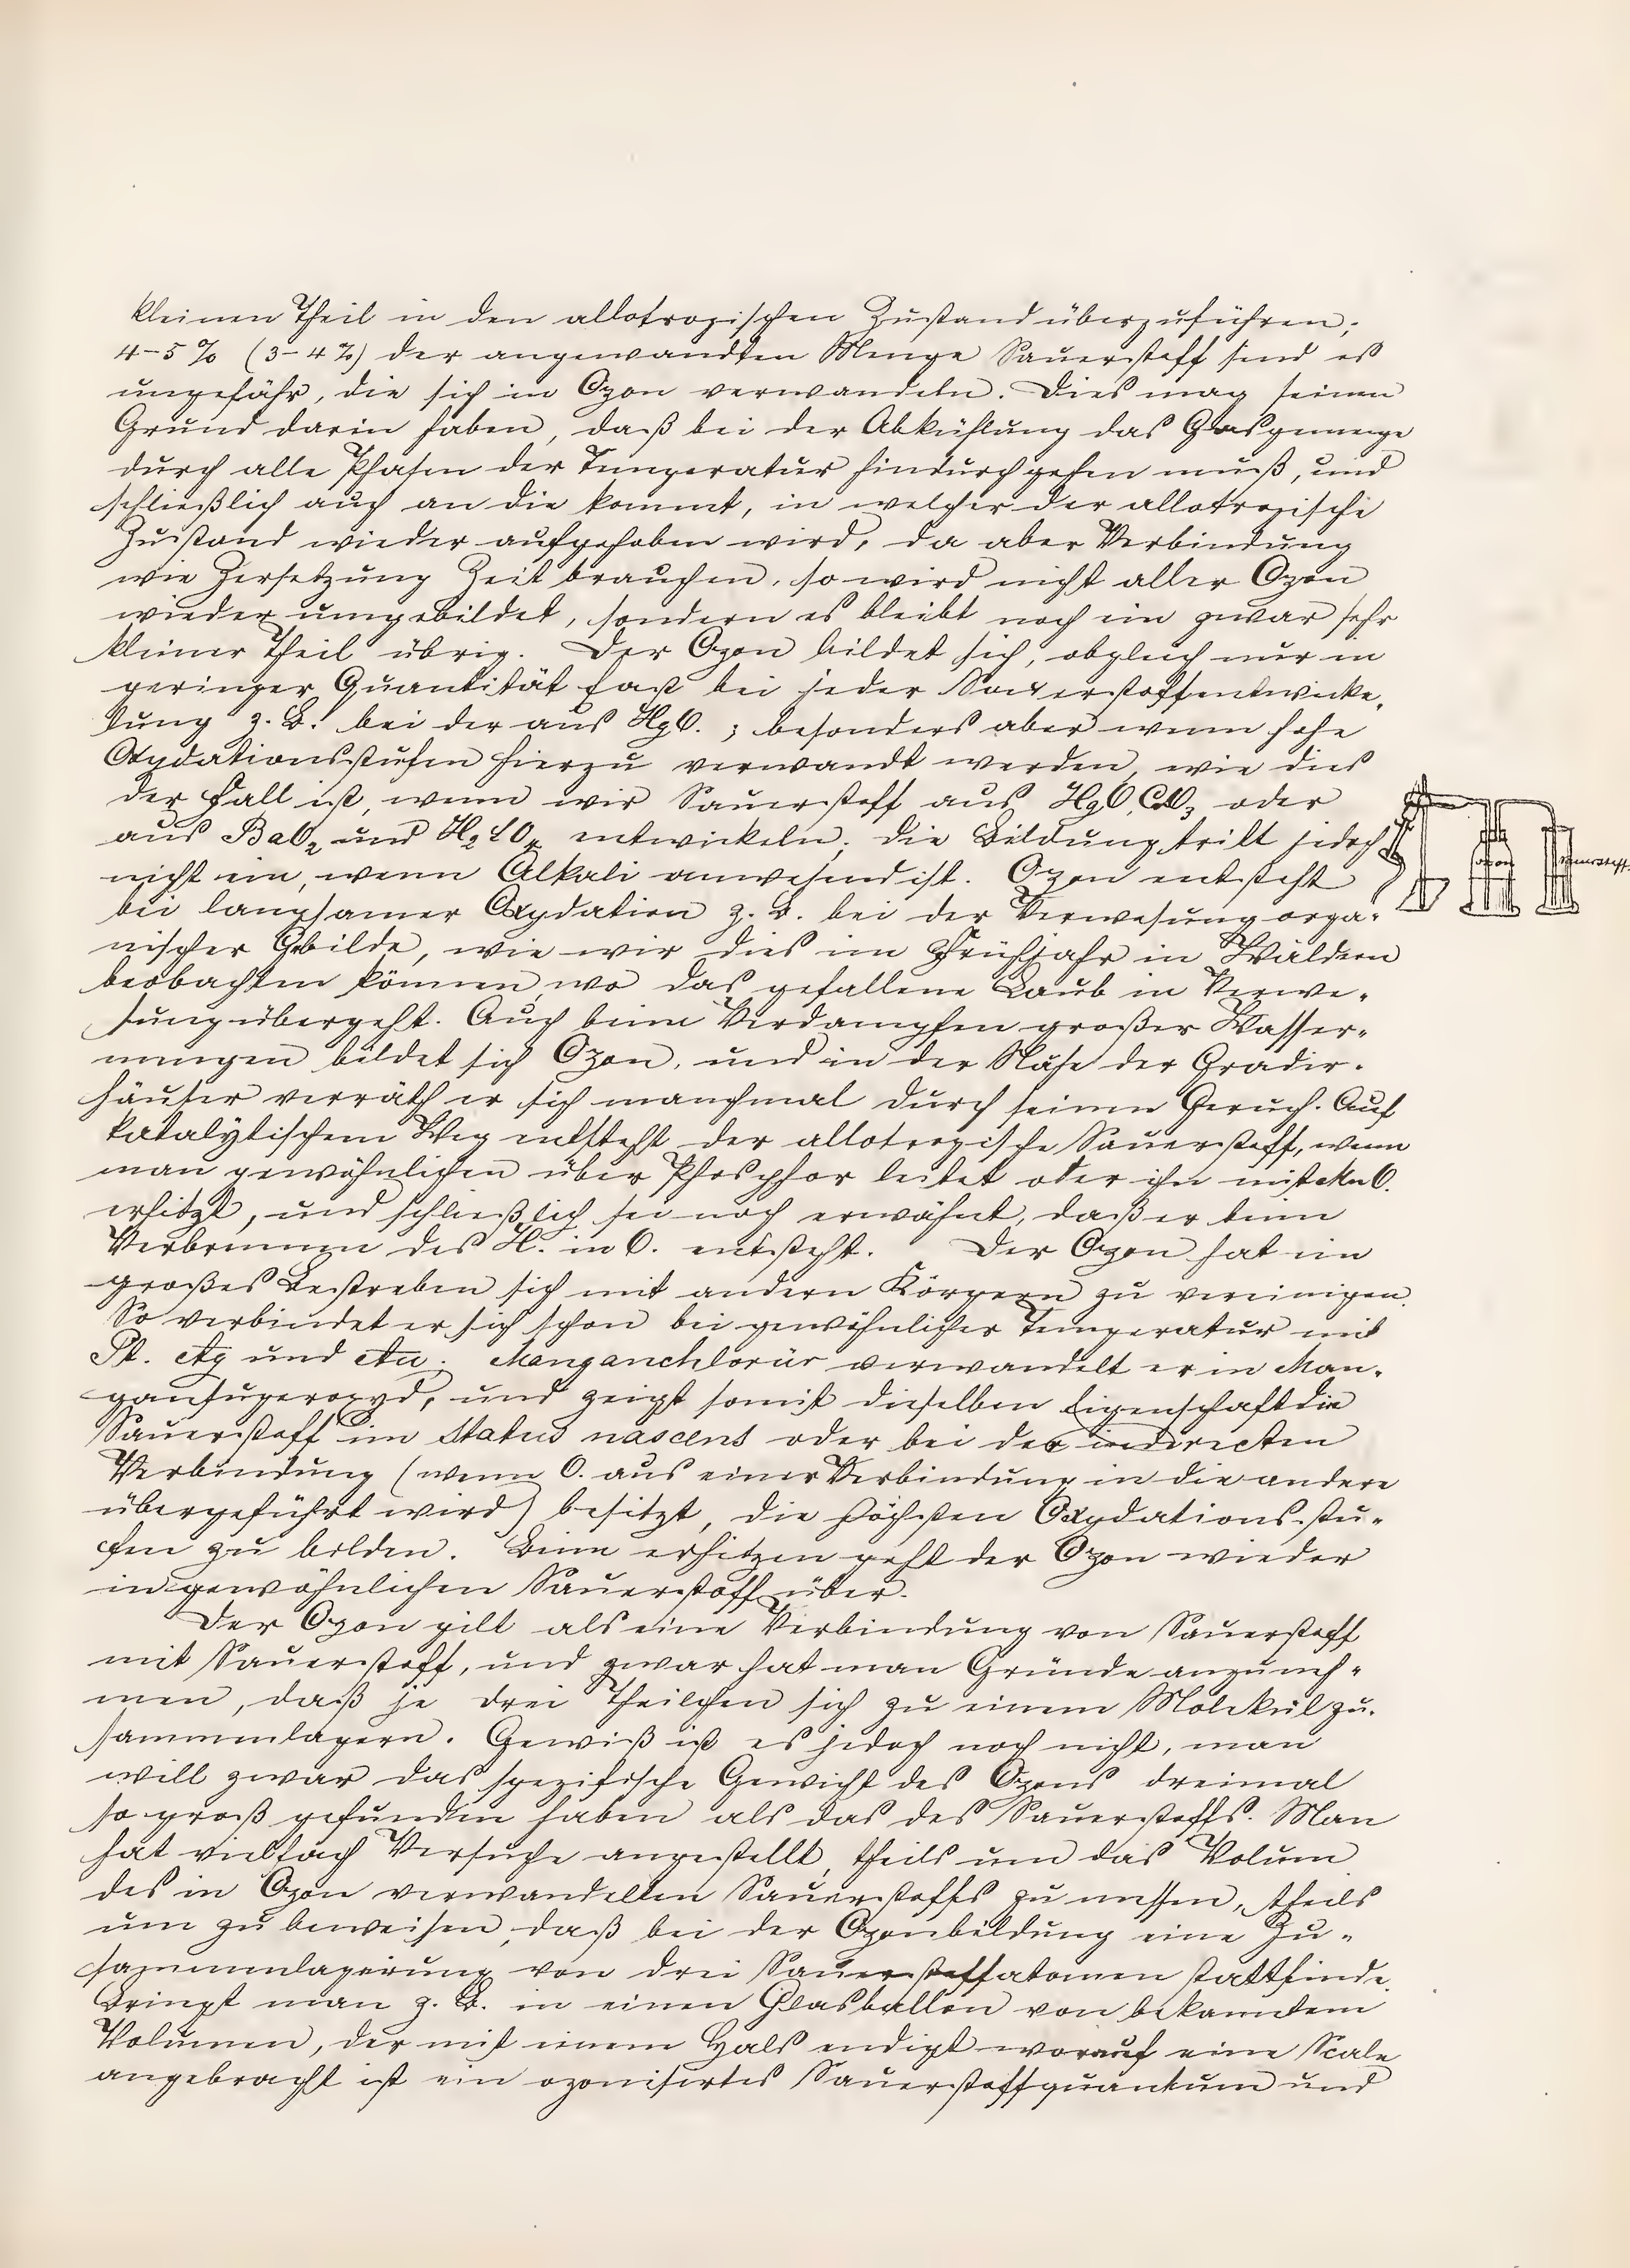 kleinen Theil in den allotropischen Zustand überzuführen;
4–5 % (3–4 %) der angewandten Menge Sauerstoff sind es
ungefähr, die sich in Ozon verwandeln. Dies mag seinen
Grund darin haben, daß bei der Abkühlung das Gasgemenge
durch alle Phasen der Temperatur hindurchgehen muß, und
schließlich auch an die kommt, in welcher der allotropische
Zustand wieder aufgehoben wird, da aber Verbindung
wie Zersetzung Zeit brauchen, so wird nicht aller Ozon
wieder umgebildet, sondern es bleibt noch ein zwar sehr
kleiner Theil übrig. Der Ozon bildet sich, obgleich nur in
geringer Quantität fast bei jeder Sauerstoffentwicke-
lung z. B. bei der aus HgO. ; besonders aber wenn hohe
Oxydationsstufen hierzu verwandt werden, wie dies
der Fall ist, wenn wir Sauerstoff aus HgO, oder
aus BaO2 und entwickeln. die Bildung tritt jedoch
nicht ein, wenn Alkali anwesend ist. Ozon entsteht
Ozon Sauerstoff.
bei langsamer Oxydation z. B. bei der Verwesung orga-
nischer Gebilde, wie wir dies im Frühjahr in Wäldern
beobachten können, wo das gefallene Laub in Verwe-
sung übergeht. Auch beim Verdampfen großer Wasser-
mengen bildet sich Ozon, und in der Nähe der Gradir-
häuser verräth er sich manchmal durch seinen Geruch. Auf
katalytischem Weg entsteht der allotropische Sauerstoff, wenn
man gewöhnlichen über Phosphor leitet oder ihn mit MnO.
erhitzt, und schließlich sei noch erwähnt, daß er beim
Verbrennen des H. in O. entsteht. Der Ozon hat ein
großes Bestreben sich mit andern Körpern zu vereinigen.
So verbindet er sich schon bei gewöhnlicher Temperatur mit
Pt. Ag und Au. Manganchlorür verwandelt er in Man-
gansuperoxyd, und zeigt somit dieselben Eigenschaft die
Sauerstoff im Status nascens oder bei der indirecten
Verbindung (wenn O. aus einer Verbindung in die andere
übergeführt wird) besitzt, die höchsten Oxydationsstu-
fen zu bilden. Beim erhitzen geht der Ozon wieder
in gewöhnlichen Sauerstoff über.
Der Ozon gilt als eine Verbindung von Sauerstoff
mit Sauerstoff, und zwar hat man Gründe anzuneh-
men, daß je drei Theilchen sich zu einem Molekül zu-
sammenlagern. Gewiß ist es jedoch noch nicht, man
will zwar das spezifische Gewicht des Ozons dreimal
so groß gefunden haben als das des Sauerstoffs. Man
hat vielfach Versuche angestellt, theils um das Volum
des in Ozon verwandelten Sauerstoffs zu messen, theils
um zu beweisen, daß bei der Ozonbildung eine Zu-
sammenlagerung von drei Sauerstoffatomen stattfinde.
Bringt man z. B. in einen Glasballon von bekanntem
Volumen, der mit einem Hals endigt worauf eine Scale
angebracht ist ein ozonisirtes Sauerstoffquantum und